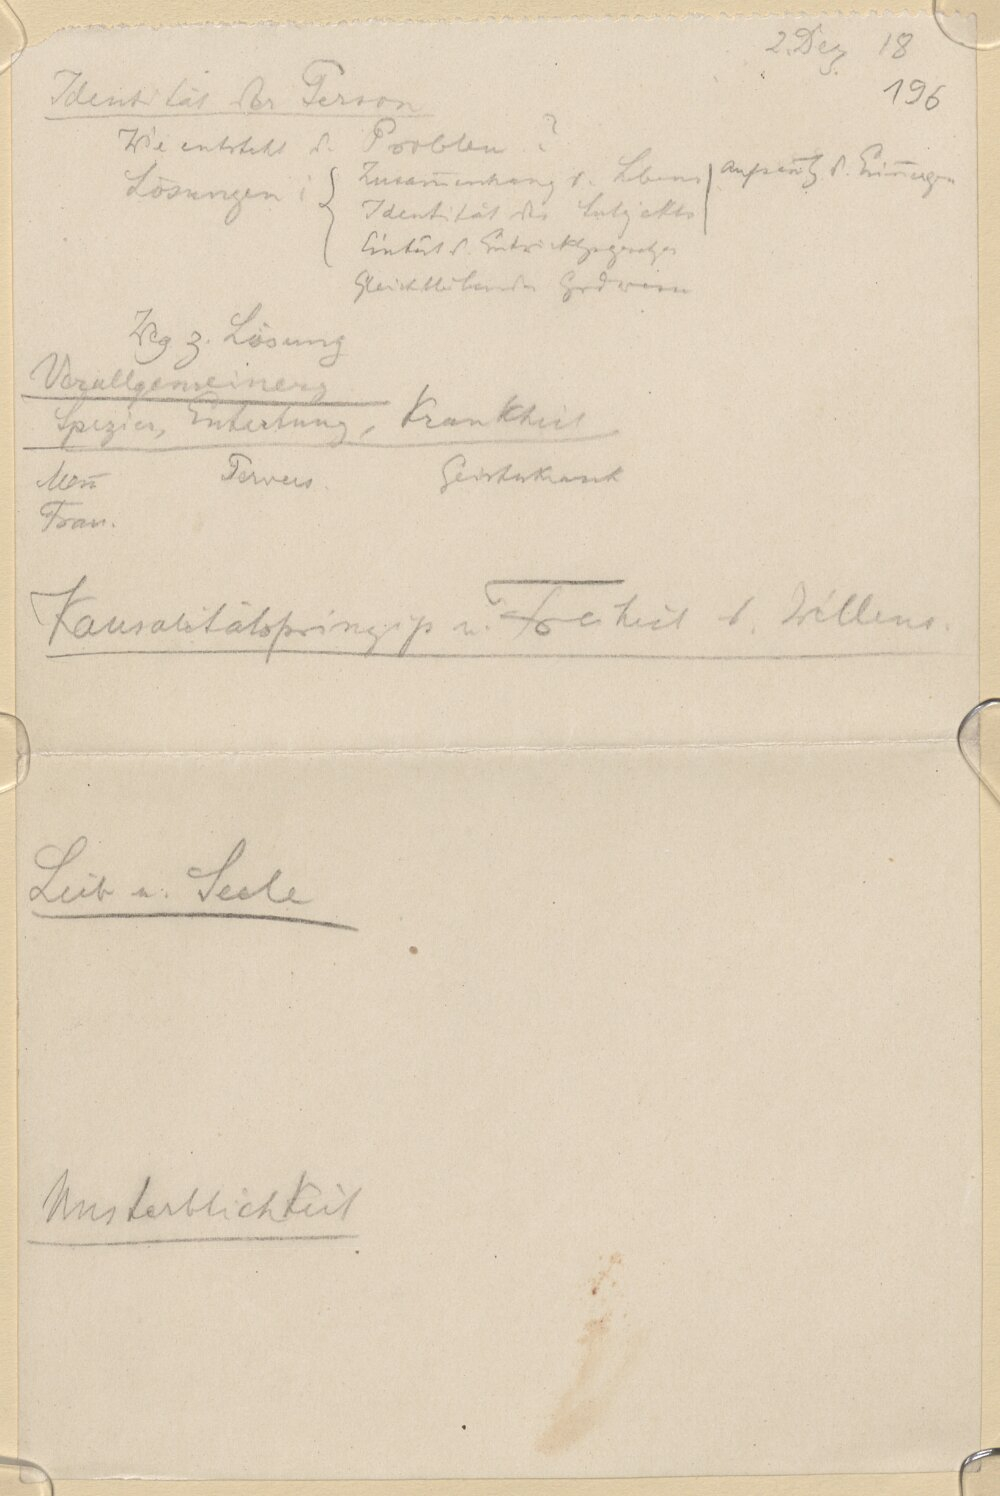 2. Dez 18
196
Identität der Person
Wie entsteht d. Problem?
Lösungen: { Zusam̅enhang d. Lebens | d. Erin̅ergen
Identität des Subjekts
Einheit d. Entwicklgsgesetzes
Gleichbleibendes
Weg z. Lösung
Verallgemeinerg
Spezies, Entartung, Krankheit
Men̅ Pervers. Geisteskrank
Frau.
Kausalitätsprinzip u. Freiheit d. Willens.
Leib u. Seele
Unsterblichkeit